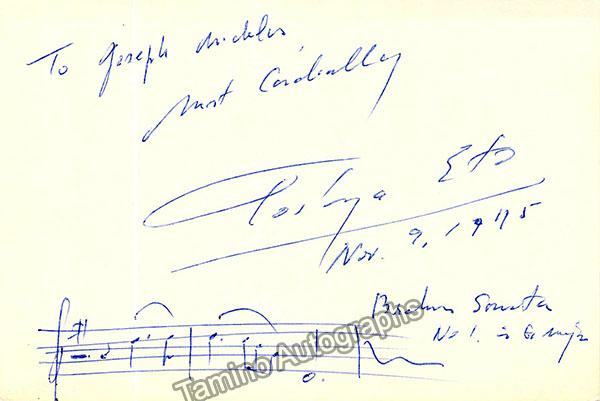 To Joseph
Most Cordially
Toshya Eto
Nov. 9, 1975
Brahms Sonata
No 1. in G major
Tamino Autographs